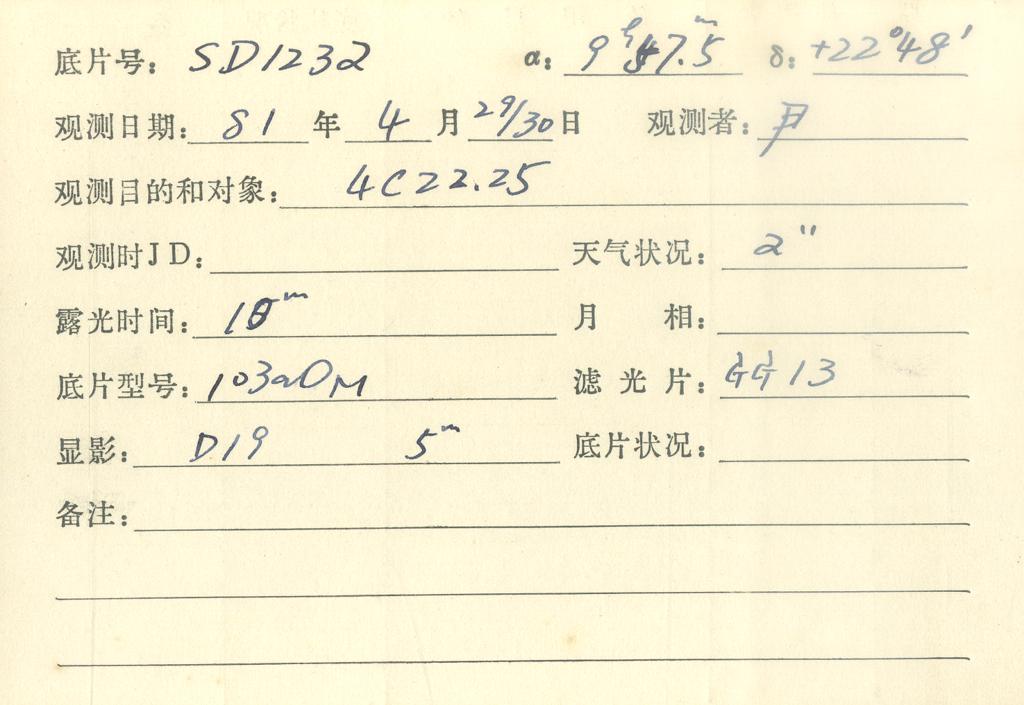 底片号: SD1232 α: 9ʰ57ᵐ.5 δ: +22°48′
观测日期: 81 年 4 月 29/30 日 观测者: 尹
观测目的和对象: 4C22.25
观测时JD: 天气状况: 2"
露光时间: 10ᵐ 月 相:
底片型号: 103aO M 滤光片: GG13
显影: D19 5ᵐ 底片状况:
备注: